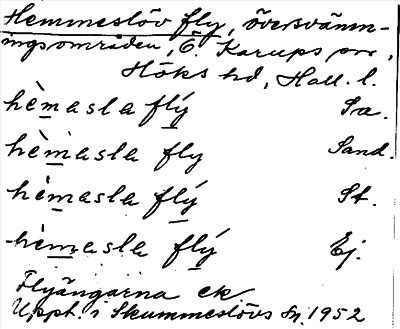 Hemmeslöv fly, översvämn-
ingsområden, Ö. Karups sn,
Höks hd, Hall. l.
hèmasla flý Sa.
hèmasla fly Sand.
hèmasla flý St.
hèmasla flý Ej.
Flyängarna ek
Uppt. i Skummeslövs sn. 1952